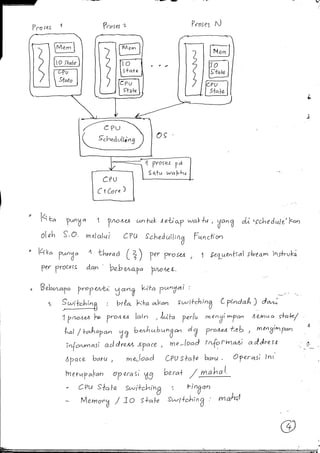 Proses 1
Proses 2
Proses N
Mem
IO State
CPU State
Mem
IO State
CPU State
- - -
Mem
IO State
CPU State
CPU Scheduling
OS
1 proses pd satu waktu
CPU (1 Core)
* Kita punya 1 proses untuk setiap waktu, yang di 'schedule' kan
oleh S.O. melalui CPU Scheduling Function
* Kita punya 1 thread (⌇) per proses, 1 sequential stream instruksi
per process dan beberapa proses.
* Beberapa properti yang kita punyai :
Switching : bila kita akan switching (pindah) dari
1 proses ke proses lain, kita perlu menyimpan semua state/
hal / tahapan yg berhubungan dg proses tsb, menyimpan
informasi address space, me-load informasi address
space baru, me-load CPU State baru. Operasi ini
merupakan operasi yg berat / mahal
- CPU State Switching : ringan
- Memory / IO State Switching : mahal
4